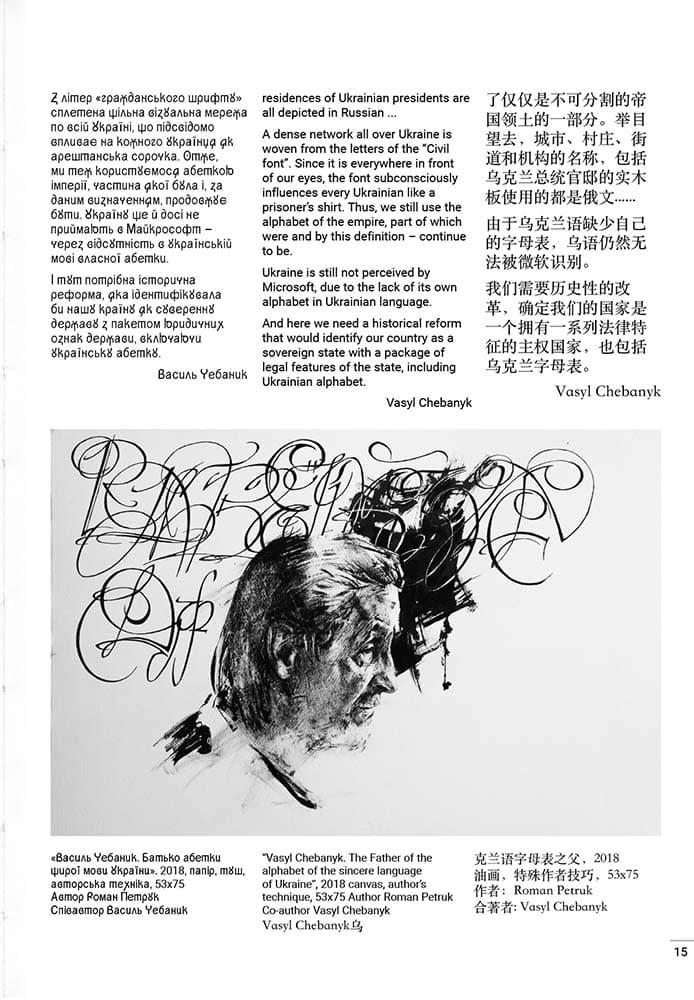 З літер «гражданського шрифту»
сплетена щільна візуальна мережа
по всій Україні, що підсвідомо
впливає на кожного українця як
арештанська сорочка. Отже,
ми теж користуємося абеткою
імперії, частина якої була і, за
даним визначенням, продовжує
бути. Україну ще й досі не
приймають в Майкрософт –
через відсутність в українській
мові власної абетки.
І тут потрібна історична
реформа, яка ідентифікувала
би нашу країну як суверенну
державу з пакетом юридичних
ознак держави, включаючи
українську абетку.
Василь Чебаник
residences of Ukrainian presidents are
all depicted in Russian ...
A dense network all over Ukraine is
woven from the letters of the “Civil
font”. Since it is everywhere in front
of our eyes, the font subconsciously
influences every Ukrainian like a
prisoner’s shirt. Thus, we still use the
alphabet of the empire, part of which
were and by this definition – continue
to be.
Ukraine is still not perceived by
Microsoft, due to the lack of its own
alphabet in Ukrainian language.
And here we need a historical reform
that would identify our country as a
sovereign state with a package of
legal features of the state, including
Ukrainian alphabet.
Vasyl Chebanyk
了仅仅是不可分割的帝
国领土的一部分。举目
望去，城市、村庄、街
道和机构的名称，包括
乌克兰总统官邸的实木
板使用的都是俄文......
由于乌克兰语缺少自己
的字母表，乌语仍然无
法被微软识别。
我们需要历史性的改
革，确定我们的国家是
一个拥有一系列法律特
征的主权国家，也包括
乌克兰字母表。
Vasyl Chebanyk
«Василь Чебаник. Батько абетки
щирої мови України». 2018, папір, туш,
авторська техніка, 53x75
Автор Роман Петрук
Співавтор Василь Чебаник
“Vasyl Chebanyk. The Father of the
alphabet of the sincere language
of Ukraine”, 2018 canvas, author’s
technique, 53x75 Author Roman Petruk
Co-author Vasyl Chebanyk
Vasyl Chebanyk乌
克兰语字母表之父，2018
油画，特殊作者技巧，53x75
作者：Roman Petruk
合著者: Vasyl Chebanyk
15